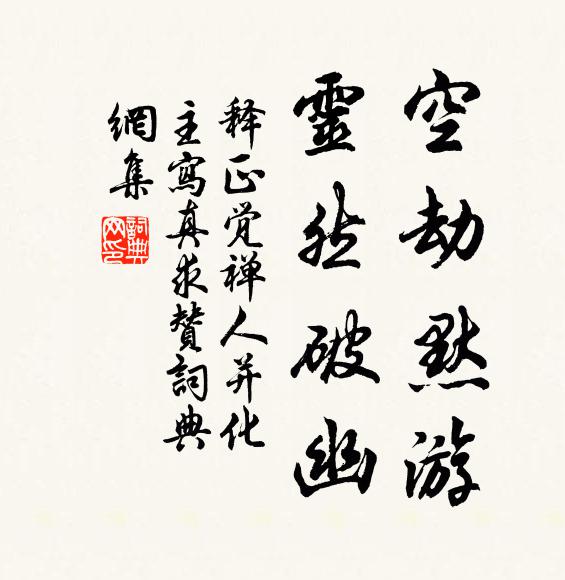 空劫默游
靈然破幽
释正觉禅人并化
主寫真求賛詞典
網集
詞典
网印